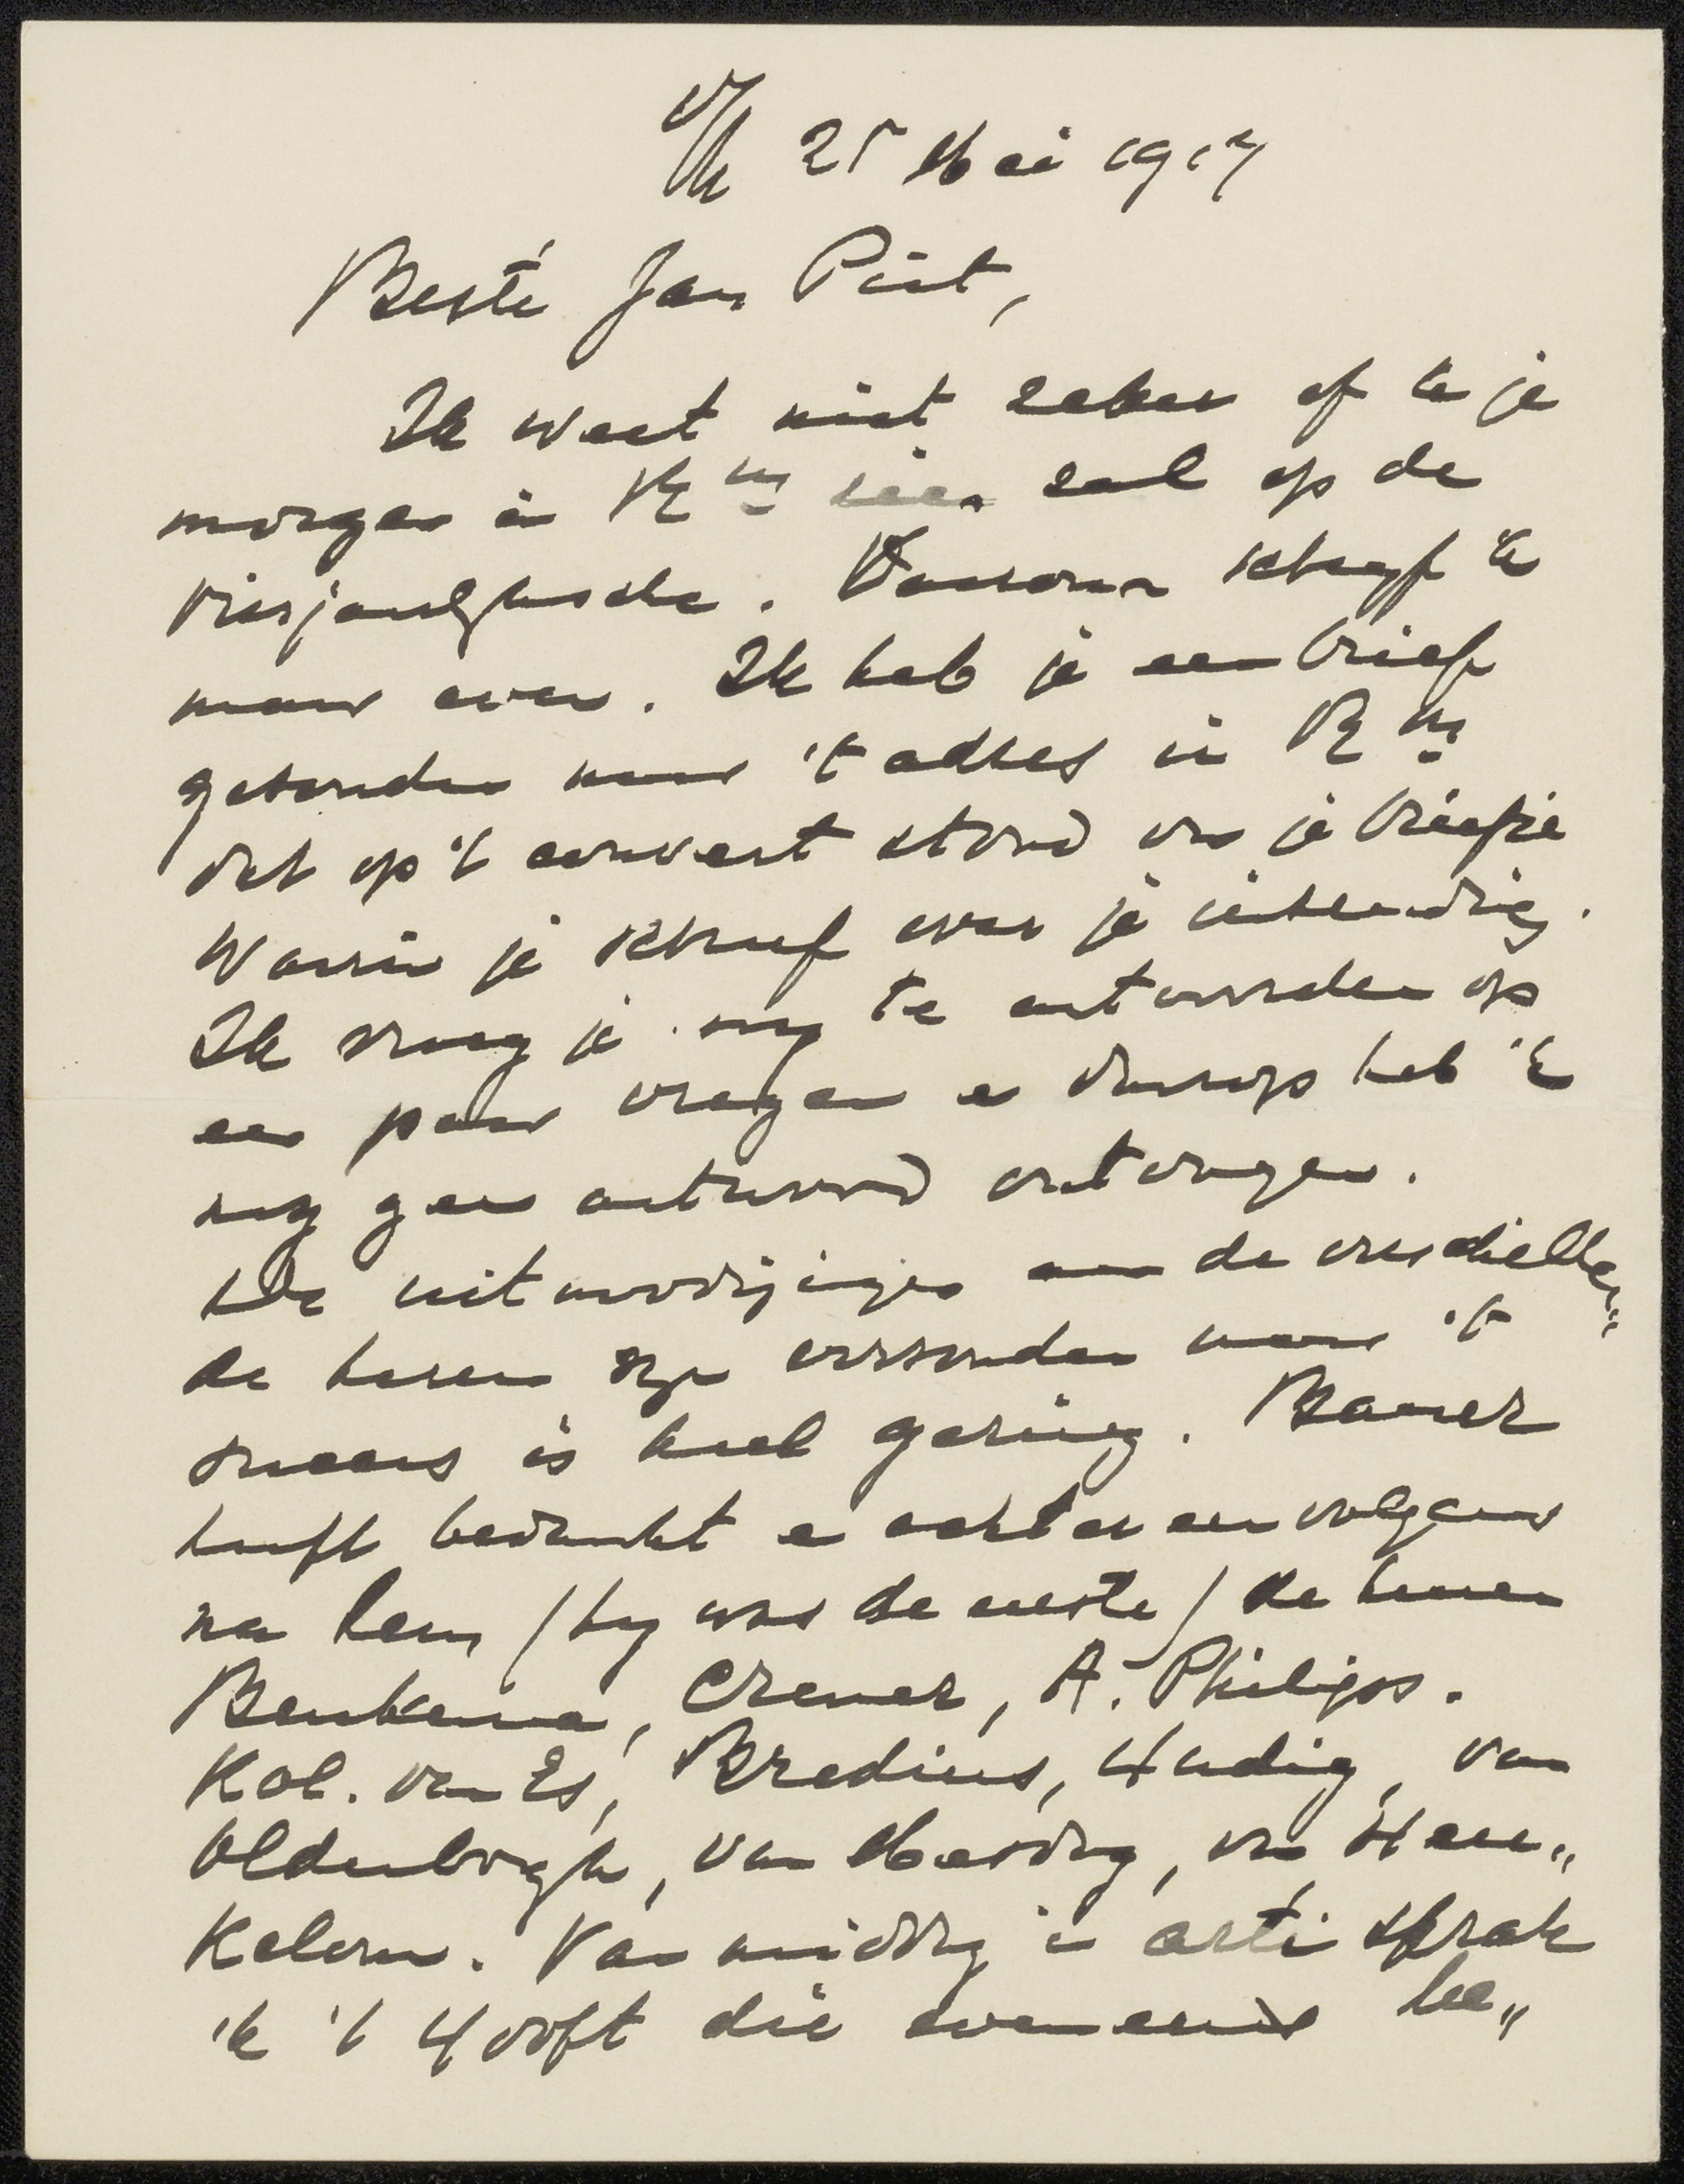 25 Mei 1917
Beste Jan Piet,
Ik weet niet zeker of ik je
morgen in R m zien zal op de
Vierjaarlijksche. Daarom schryf 'k
maar even. Ik heb je een brief
gezonden naar 't adres in R m
dat op 't couvert stond van je briefje
Waarin je schreef over je inzending.
Ik vroeg je my te antwoorden op
een paar vragen en daarop heb 'k
nog geen antwoord ontvangen.
De uitnoodigingen aan de verschillen„
de heeren zyn verzonden maar 't
succes is heel gering. Bauer
heeft bedankt en achtereenvolgens
na hem /hy was de eerste/ de heeren
Beukema, Cremer, A. Philips.
Kol. van Es, Bredius, Hudig, van
Oldenborgh, van Mesdag, van Heu„
Kelom. Van middag in arti sprak
'k 't Hooft die eveneens be„